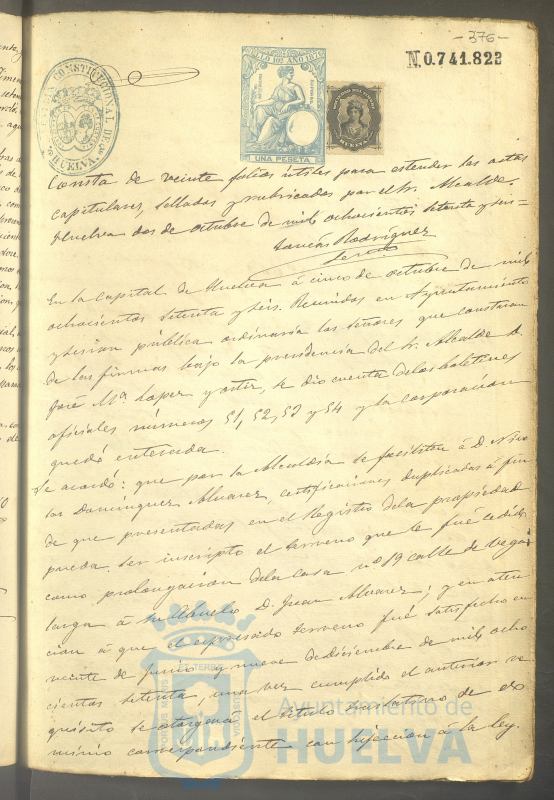 -376-
N.0.741.822
SELLO 10º AÑO 1876
UNA PESETA
HUELVA
Consta de veinte folios útiles para estender las actas
capitulares, sellados y rubricados por el Sr. Alcalde.
Huelva dos de octubre de mil ochocientos setenta y seis=
Rodriguez
En la Capital de Huelva á cinco de octubre de mil
ochocientos setenta y seis. Reunidos en Ayuntamiento
y sesion pública ordinaria los señores que constan
de las firmas bajo la presidencia del Sr. Alcalde D.
José Mª Lopez y se dio cuenta de los boletines
oficiales números 51, 52, 53 y 54 y la corporacion
quedó enterada.
Se acordó: que por la Alcaldía se faciliten á D. Nico
las Dominguez Alvarez, certificaciones duplicadas á fin
de que presentadas en el Registro de la propiedad
pueda ser inscripto el terreno que le fué cedido
como prolongacion de la casa nº 19 calle de Vega
larga á su Abuelo D. Juan Alvarez, y en aten
cion á que el espresado terreno fué satisfecho en
veinte de Junio y nueve de diciembre de mil ocho
cientos setenta, una vez cumplido el anterior re
quisito se otorgará el título traslativo de do
minio correspondiente con sujecion á la ley.
Ayuntamiento de
HUELVA